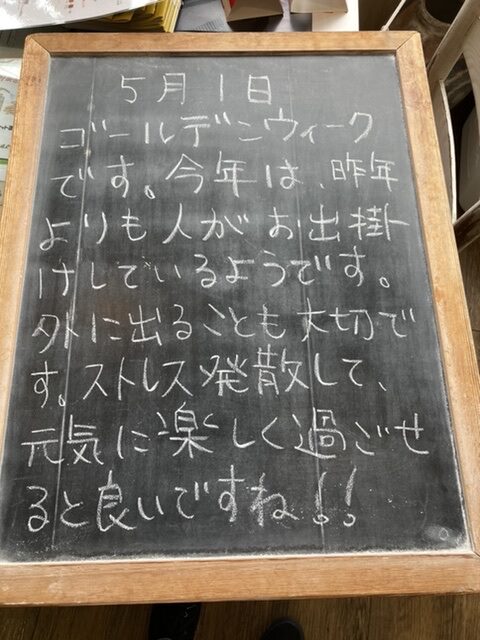 5月1日
ゴールデンウィーク
です。今年は、昨年
よりも人がお出掛
けしているようです。
外に出ることも大切で
す。ストレス発散して、
元気に楽しく過ごせ
ると良いですね!!